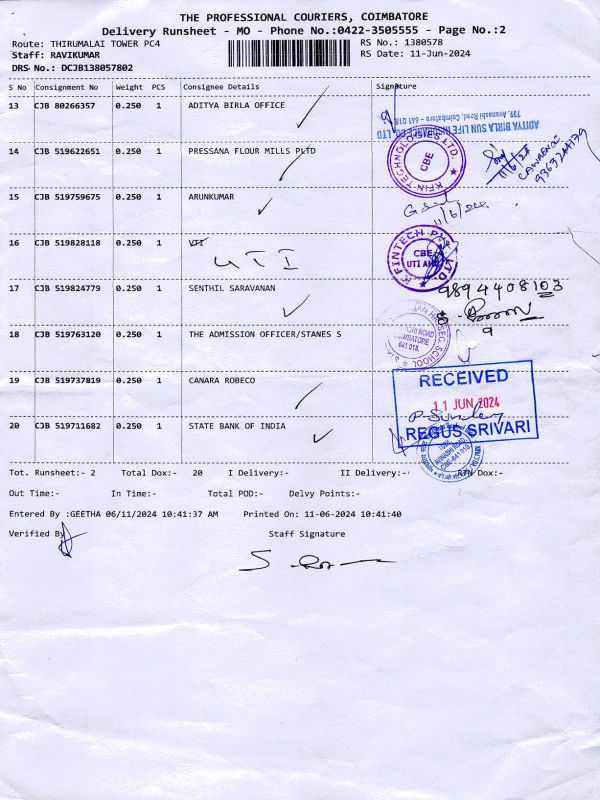 THE PROFESSIONAL COURIERS, COIMBATORE
Delivery Runsheet - MO - Phone No.:0422-3505555 - Page No.:2
Route: THIRUMALAI TOWER PC4 RS No.: 1380578
Staff: RAVIKUMAR RS Date: 11-Jun-2024
DRS No.: DCJB138057802
S No Consignment No Weight PCS Consignee Details Signature
13 CJB 80266357 0.250 1 ADITYA BIRLA OFFICE
ADITYA BIRLA SUN LIFE INSURANCE CO. LTD
739, Avanashi Road, Coimbatore - 641 018
14 CJB 519622651 0.250 1 PRESSANA FLOUR MILLS PLTD
KFIN TECHNOLOGIES LTD. CBE
11/6/24
15 CJB 519759675 0.250 1 ARUNKUMAR
11/6/24
16 CJB 519828118 0.250 1 UTI
UTI
K FINTECH P. LTD. CBE UTI AMC
17 CJB 519824779 0.250 1 SENTHIL SARAVANAN
9894408103
18 CJB 519763120 0.250 1 THE ADMISSION OFFICER/STANES S
SEC. SCHOOL
641 018.
19 CJB 519737819 0.250 1 CANARA ROBECO
RECEIVED
11 JUN 2024
REGUS SRIVARI
20 CJB 519711682 0.250 1 STATE BANK OF INDIA
Tot. Runsheet:- 2 Total Dox:- 20 I Delivery:- II Delivery:- RTN Dox:-
Out Time:- In Time:- Total POD:- Delvy Points:-
Entered By :GEETHA 06/11/2024 10:41:37 AM Printed On: 11-06-2024 10:41:40
Verified By Staff Signature